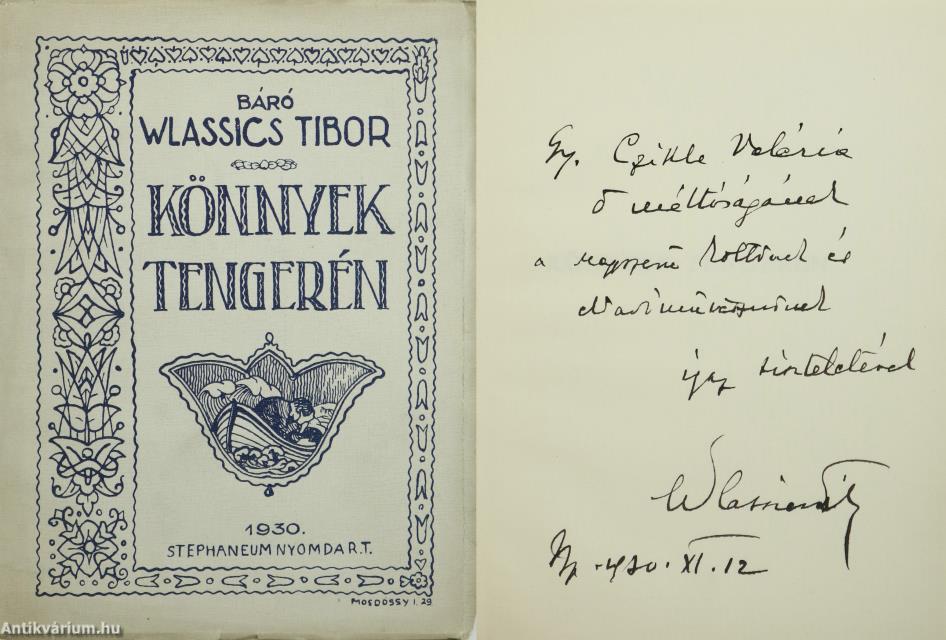 BÁRÓ
WLASSICS TIBOR
KÖNNYEK
TENGERÉN
1930.
STEPHANEUM NYOMDA R.T.
MOSDOSSY I. 29
Antikvárium.hu
Gy. Czikle Valéria
ő méltóságának
a nagyszerű költőnek és
előadóművésznőnek
igaz tisztelettel
Wlassics T
Bp. 930. XI. 12